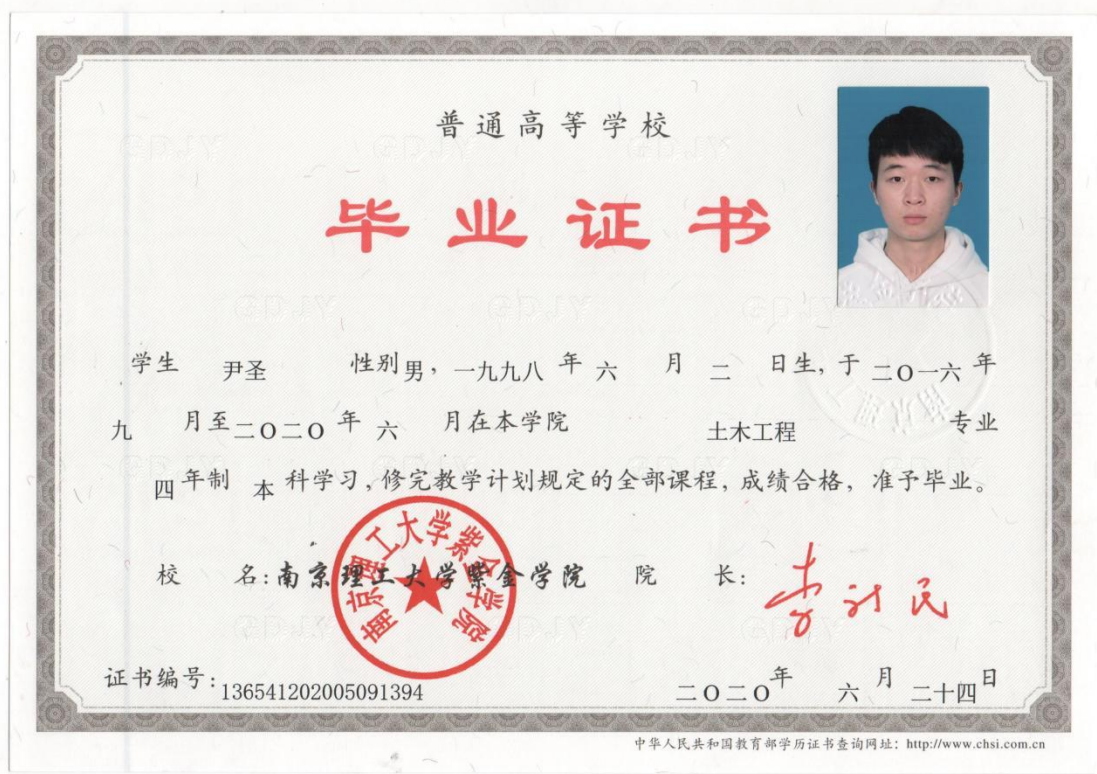 普通高等学校
毕业证书
学生 尹圣 性别男，一九九八年六月二日生，于二〇一六年
九月至二〇二〇年六月在本学院 土木工程 专业
四年制 本科学习，修完教学计划规定的全部课程，成绩合格，准予毕业。
校 名：南京理工大学紫金学院 院 长：
南京理工大学紫金学院
证书编号：136541202005091394 二〇二〇年六月二十四日
中华人民共和国教育部学历证书查询网址：http://www.chsi.com.cn